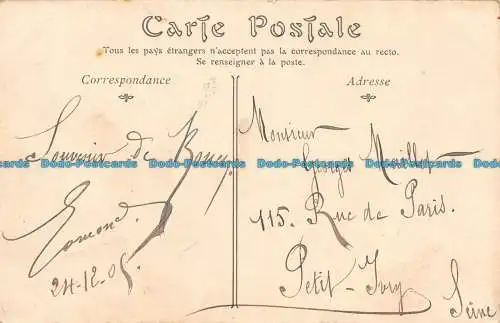 Carte Postale
Tous les pays étrangers n'acceptent pas la correspondance au recto.
Se renseigner à la poste.
Correspondance
Souvenir de
Edmond.
24-12.05
Adresse
Monsieur
Georges Maillot
115. Rue de Paris.
Petit-Ivry
Seine
Dodo-Postcards Dodo-Postcards Dodo-Postcards Dodo-Postcards Dodo-Postcards